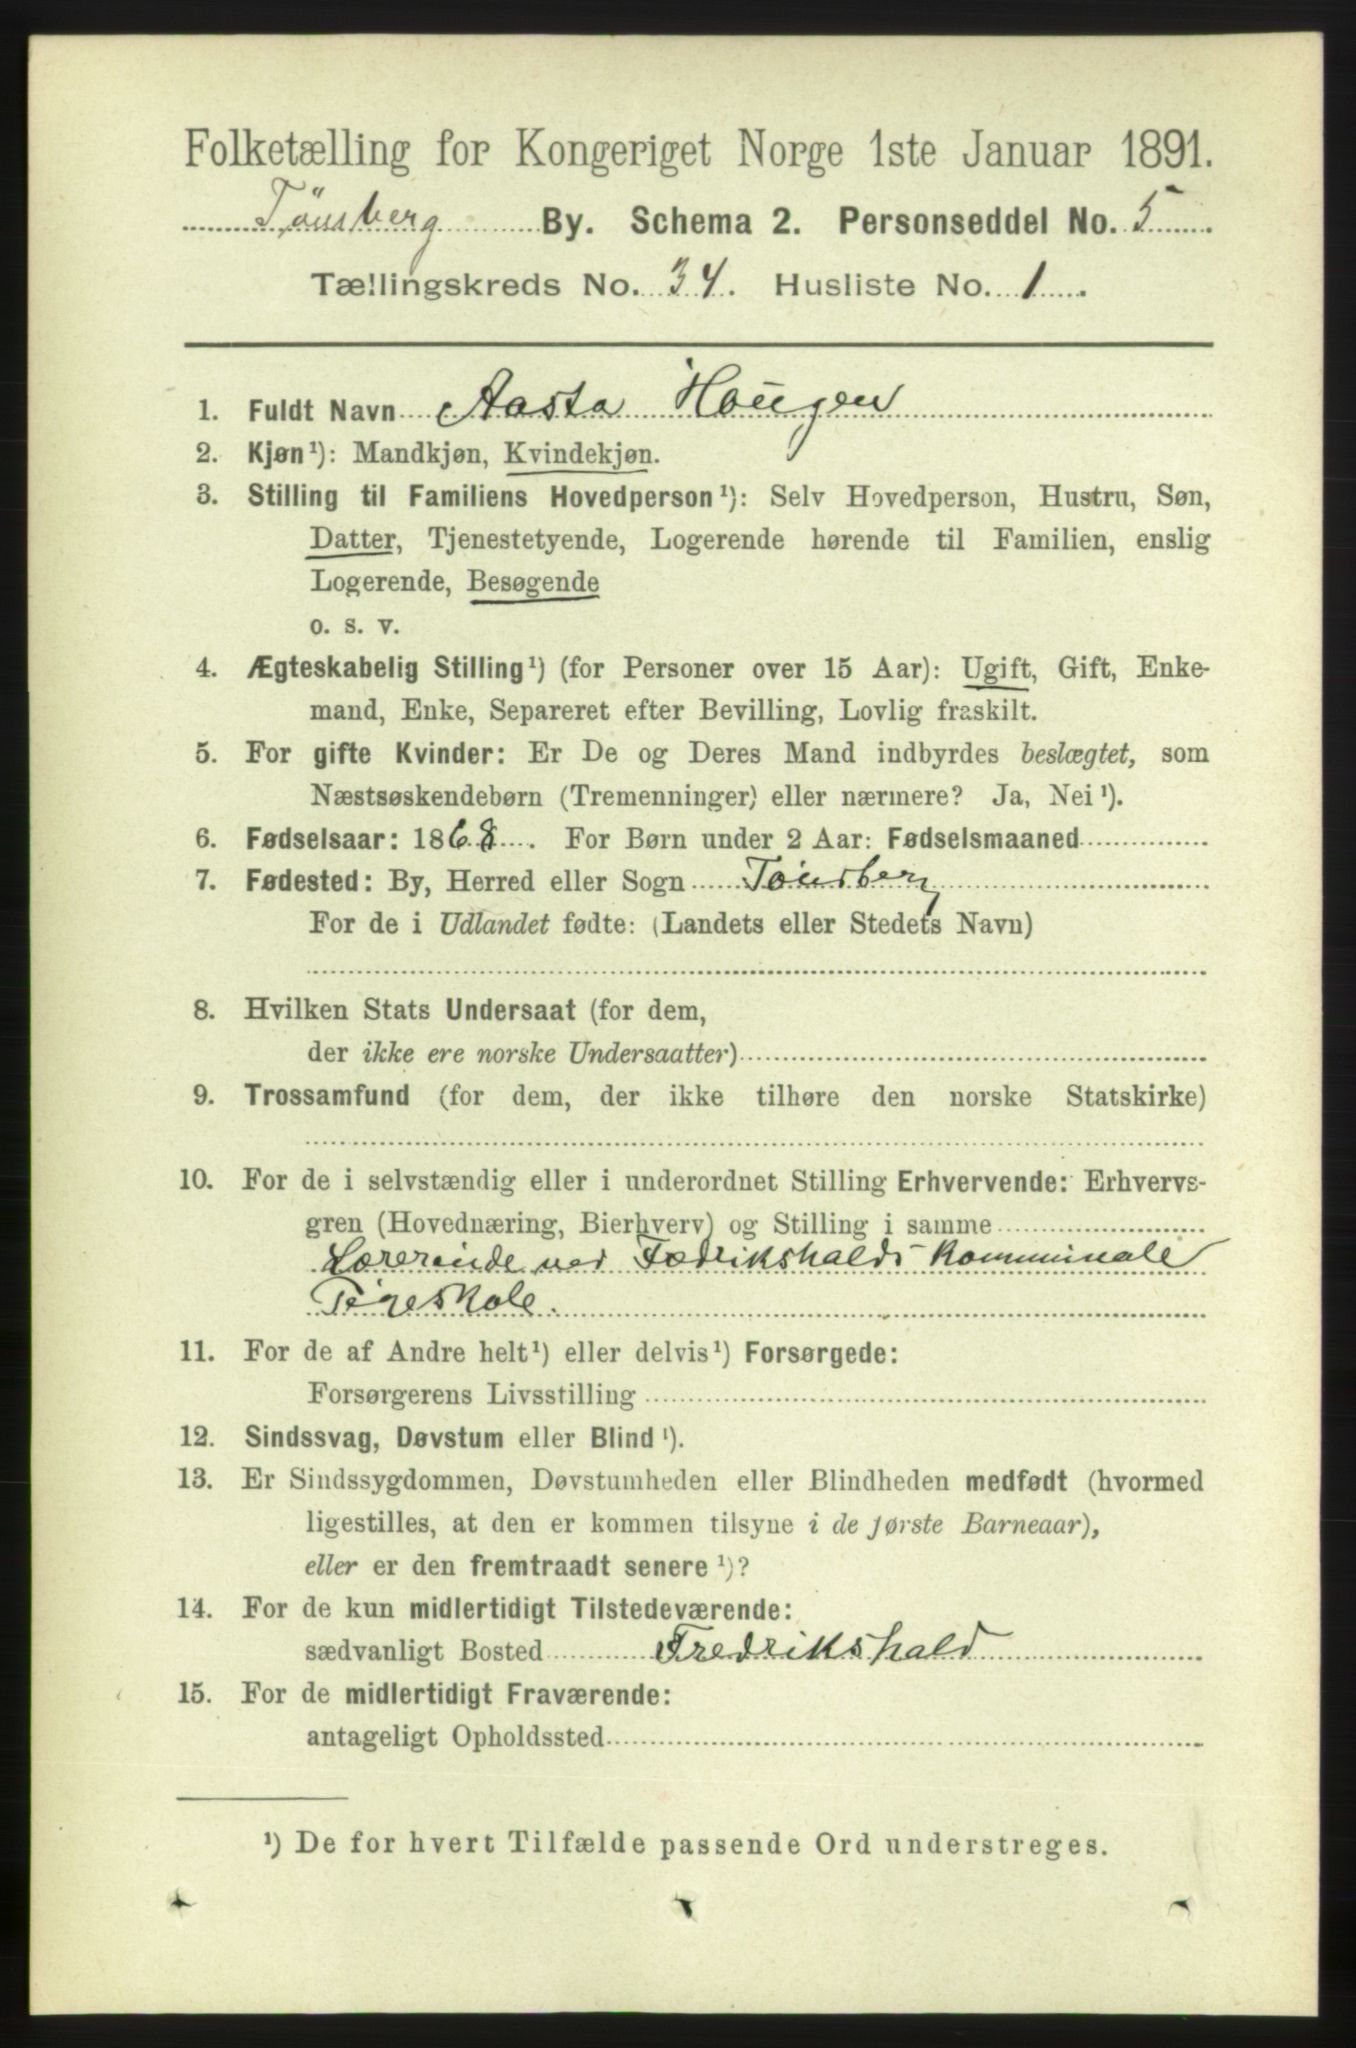 Folketælling for Kongeriget Norge 1ste Januar 1891.
Tönsberg By. Schema 2. Personseddel No. 5
Tællingskreds No. 34. Husliste No. 1.
1. Fuldt Navn Aasta Haugen
2. Kjøn¹): Mandkjøn, Kvindekjøn.
3. Stilling til Familiens Hovedperson¹): Selv Hovedperson, Hustru, Søn,
Datter, Tjenestetyende, Logerende hørende til Familien, enslig
Logerende, Besøgende
o. s. v.
4. Ægteskabelig Stilling¹) (for Personer over 15 Aar): Ugift, Gift, Enke-
mand, Enke, Separeret efter Bevilling, Lovlig fraskilt.
5. For gifte Kvinder: Er De og Deres Mand indbyrdes beslægtet, som
Næstsøskendebørn (Tremenninger) eller nærmere? Ja, Nei¹).
6. Fødselsaar: 1868. For Børn under 2 Aar: Fødselsmaaned
7. Fødested: By, Herred eller Sogn Tönsberg
For de i Udlandet fødte: (Landets eller Stedets Navn)
8. Hvilken Stats Undersaat (for dem,
der ikke ere norske Undersaatter)
9. Trossamfund (for dem, der ikke tilhøre den norske Statskirke)
10. For de i selvstændig eller i underordnet Stilling Erhvervende: Erhvervs-
gren (Hovednæring, Bierhverv) og Stilling i samme
Lærerinde ved Fredrikshalds Kommunale
Pigeskole.
11. For de af Andre helt¹) eller delvis¹) Forsørgede:
Forsørgerens Livsstilling
12. Sindssvag, Døvstum eller Blind¹).
13. Er Sindssygdommen, Døvstumheden eller Blindheden medfødt (hvormed
ligestilles, at den er kommen tilsyne i de første Barneaar),
eller er den fremtraadt senere¹)?
14. For de kun midlertidigt Tilstedeværende:
sædvanligt Bosted Fredrikshald
15. For de midlertidigt Fraværende:
antageligt Opholdssted
¹) De for hvert Tilfælde passende Ord understreges.